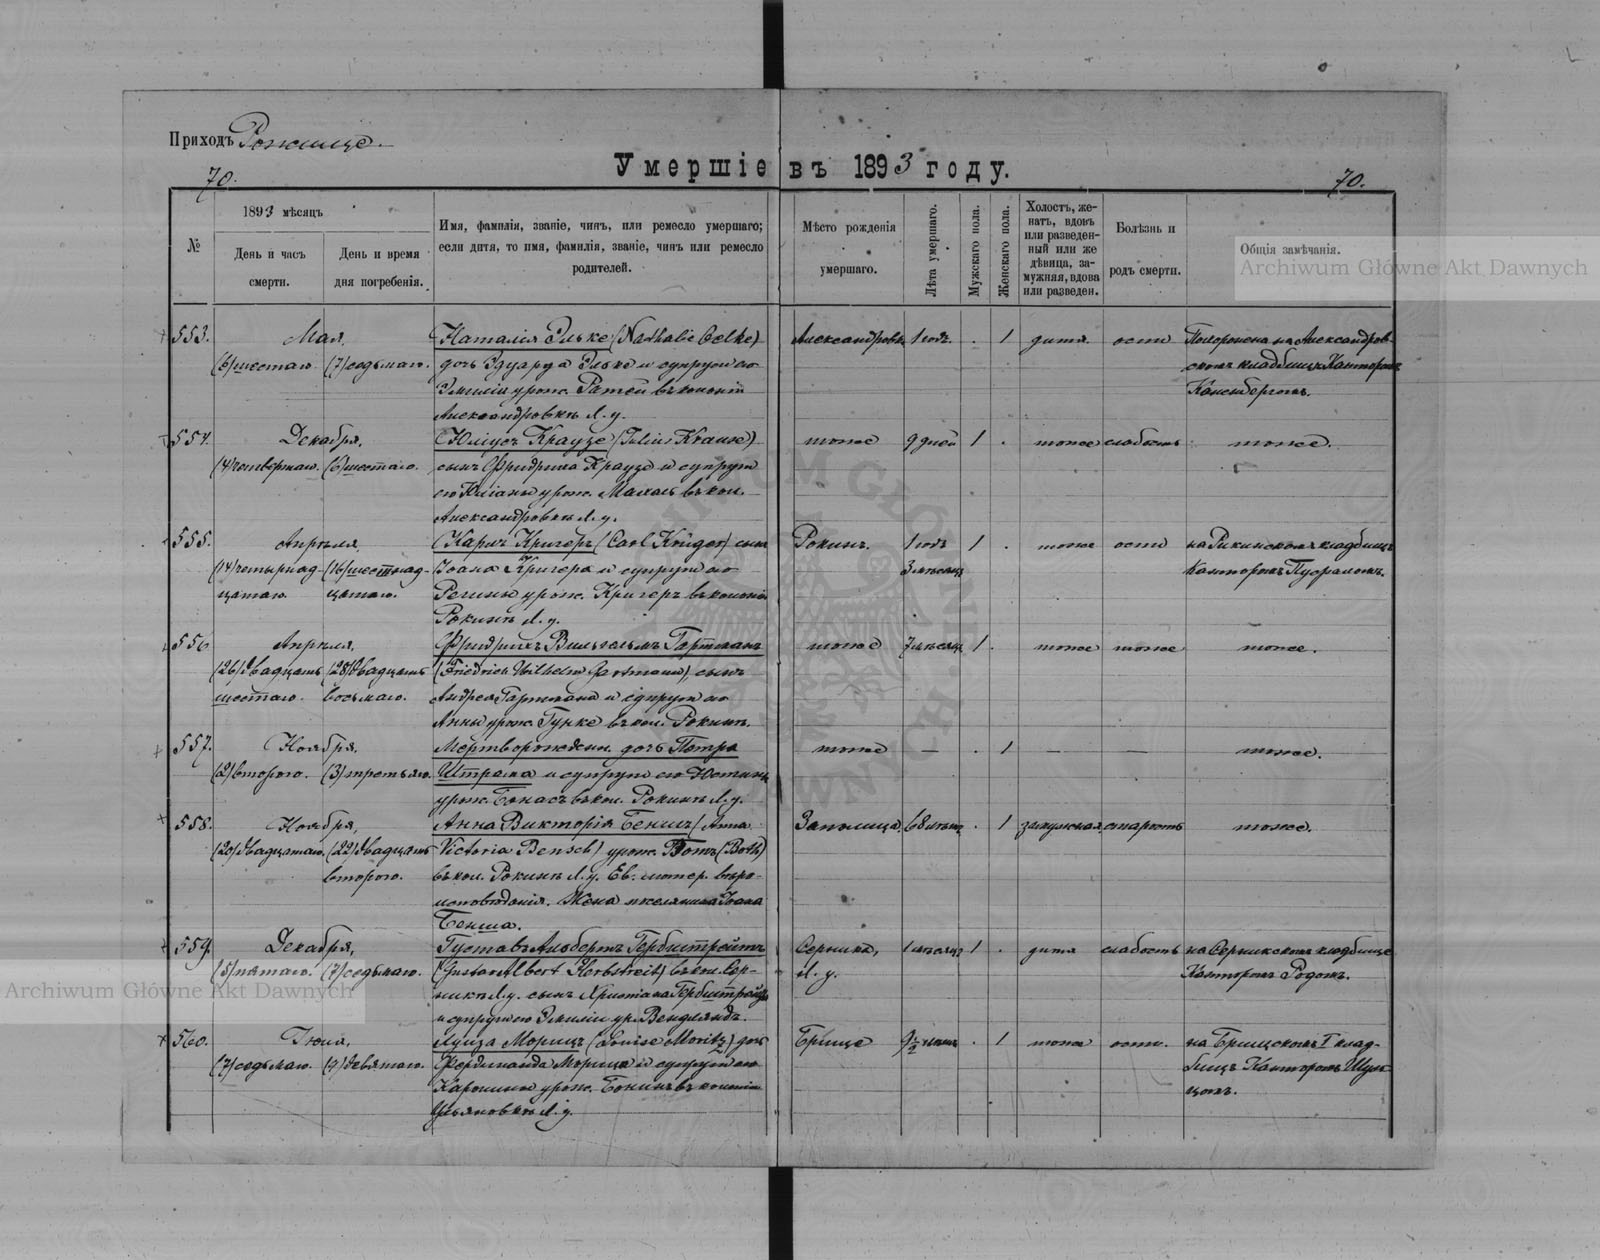 Приходъ Рожище.
Умершіе въ 1893 году.
70.
70.
№
1893 мѣсяцъ
День и часъ смерти.
День и время дня погребенія.
Имя, фамилія, званіе, чинъ, или ремесло умершаго;
если дитя, то имя, фамилія, званіе, чинъ или ремесло
родителей.
Мѣсто рожденія
умершаго.
Лѣта умершаго.
Мужскаго пола.
Женскаго пола.
Холостъ, же-
натъ, вдовъ
или разведен-
ный или же
дѣвица, за-
мужняя, вдова
или разведен.
Болѣзнь и
родъ смерти.
Общія замѣчанія.
Archiwum Główne Akt Dawnych
553. Мая, Наталія Эльке (Nathalie Oelke) Александровк. 1 годъ . 1 дитя ости Похоронена на Александров-
(6) шестаго (7) седьмаго. дочь Эдуарда Эльке и супруги его скомъ кладбищѣ Канторомъ
Эмиліи урож. Ратей въ колоніи
Александровкѣ Л. у.
554. Декабря, Юліусъ Краузе (Julius Krause) тоже 9 дней 1 . тоже слабость тоже.
(4) четвертаго. (6) шестаго. сынъ Фридриха Краузе и супруги
его Юліаны урож. въ кол.
Александровкѣ Л. у.
555. Апрѣля, Карлъ Кригеръ (Carl Krüger) сынъ Рокинъ. 1 годъ 1 . тоже ости на Рокинскомъ кладбищѣ
(14) четырнад- (16) шестнад- Іоана Кригера и супруги его 3 мѣсяц. Канторомъ
цатаго. цатаго. Регины урож. Кригеръ въ колоніи
Рокинѣ Л. у.
556. Апрѣля, Фридрихъ Вильгельмъ Гартманъ тоже 7 мѣсяц. 1 . тоже тоже тоже.
(26) двадцать (28) двадцать (Friedrich Wilhelm Gartmann), сынъ
шестаго. восьмаго. Андрея Гартмана и супруги его
Анны урож. Гунке въ кол. Рокинѣ.
557. Ноября, Мертворожден. дочь Петра тоже — . 1 — — тоже.
(2) втораго. (3) третьяго. Штрама и супруги его Юстины
урож. въ кол. Рокинѣ Л. у.
558. Ноября, Анна Викторія Беншъ (Anna Заполица. 68 лѣтъ . 1 замужняя старость тоже.
(20) двадцатаго. (22) двадцать Victoria Bensch) урож. Ботъ (Both)
втораго. въ кол. Рокинѣ Л. у. Ев. лютер. вѣро-
исповѣданія. Жена поселянина Іоана
Бенша.
559. Декабря, Густавъ Альбертъ Гербштрейтъ Серника, 1 мѣсяц. 1 . дитя слабость на Серникскомъ кладбище
(5) пятаго. (7) седьмаго. (Gustav Albert Herbstreit) въ кол. Сер- Л. у. Канторомъ Родомъ.
никѣ Л. у. сынъ Христіана Гербштрейта
и супруги его Эмиліи ур. Вендляндъ.
Archiwum Główne Akt Dawnych
560. Іюля, Луиза Морицъ (Louise Moritz) дочь Брище 9½ лѣтъ . 1 тоже ости. на Брищскомъ I клад-
(7) седьмаго. (9) девятаго. Фердинанда Морица и супруги его бищѣ Канторомъ Шул-
Каролины урож. въ колоніи цомъ.
Ульяновкѣ Л. у.